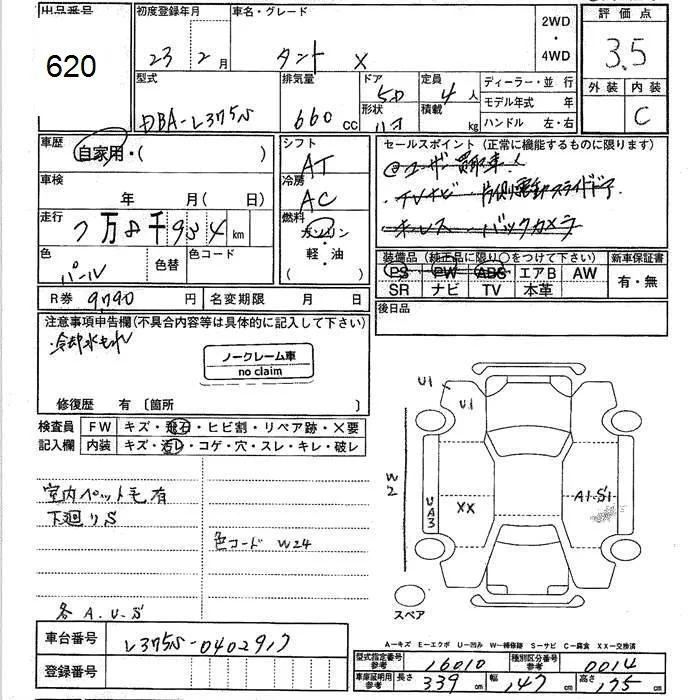 出品番号 初度登録年月 車名・グレード 2WD・4WD 評価点
620 23年 2月 タント X 3.5
型式 排気量 ドア 定員 ディーラー・並行 外装 内装
DBA-L375S 660cc 5D 4人 モデル年式 年 C
形状 積載 kg ハンドル 左・右
車歴 自家用・( )
シフト AT
セールスポイント(正常に機能するものに限ります)
ユーザー買取車!
TVナビ 片側電動スライドドア
キーレス バックカメラ
車検 年 月( 日)
冷房 AC
走行 7万8千954km
燃料 ガソリン・軽油
色 パール 色替 色コード
装備品(純正品に限り○をつけて下さい) 新車保証書
PS PW ABS エアB AW 有・無
SR ナビ TV 本革
R券 9790円 名変期限 月 日
後日品
注意事項申告欄(不具合内容等は具体的に記入して下さい)
・冷却水もれ
ノークレーム車
no claim
修復歴 有〔箇所 〕
検査員記入欄 FW キズ・飛石・ヒビ割・リペア跡・×要
内装 キズ・汚レ・コゲ・穴・スレ・キレ・破レ
室内ペット毛有
下廻りS
色コード W24
各A.U.S
U1
U1
W2
UA3
XX
A1.S1
スペア
A−キズ E−エクボ U−凹み W−補修跡 S−サビ C−腐食 XX−交換済
車台番号 L375S-0402917
登録番号
型式指定番号参考 16010 種別区分番号参考 0014
車庫証明用参考 長さ 339cm 幅 147cm 高さ 175cm